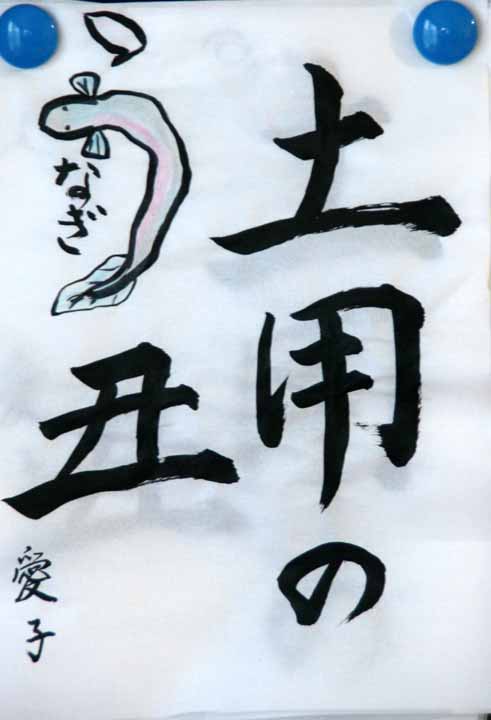 土用の
丑
うなぎ
愛子